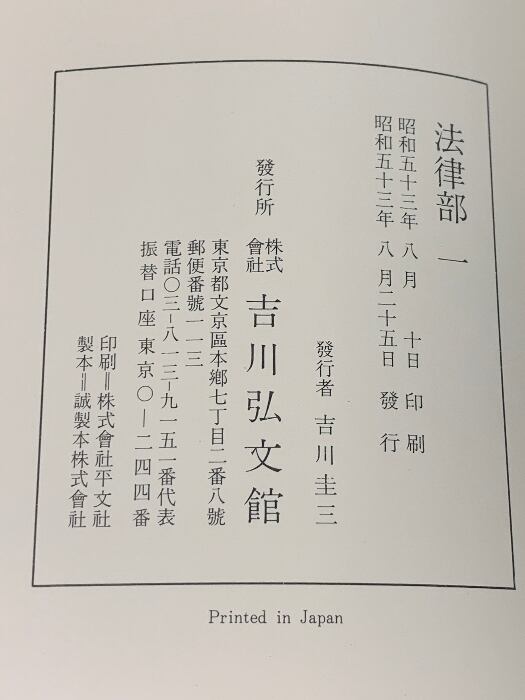 法律部 一
昭和五十三年 八月 十日 印刷
昭和五十三年 八月二十五日 發行
發行者 吉川圭三
發行所 株式會社 吉川弘文館
東京都文京區本郷七丁目二番八號
郵便番號一一三
電話〇三-八一三-九一五一番代表
振替口座東京〇—二四四番
印刷=株式會社平文社
製本=誠製本株式會社
Printed in Japan